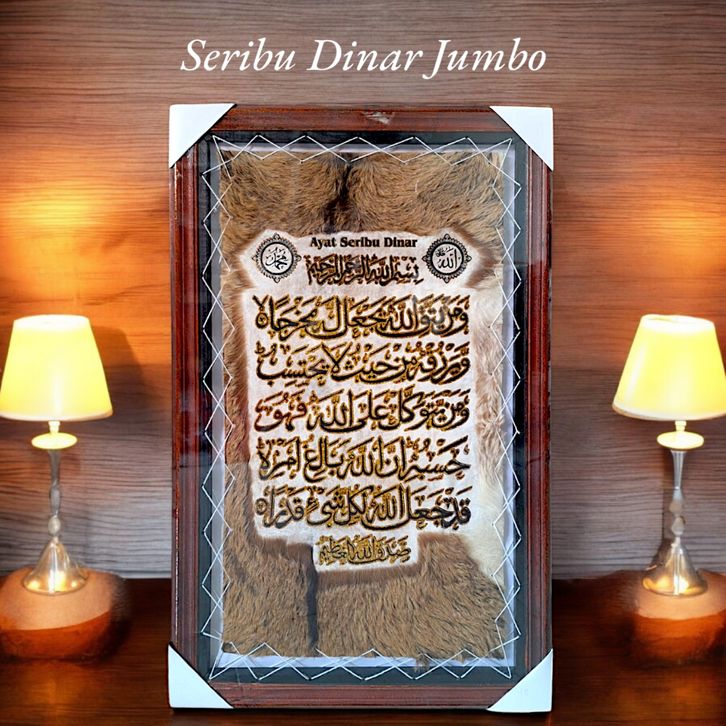 Seribu Dinar Jumbo
Ayat Seribu Dinar
محمد
الله
بسم الله الرحمن الرحيم
ومن يتق الله يجعل له مخرجا
ويرزقه من حيث لا يحتسب
ومن يتوكل على الله فهو
حسبه إن الله بالغ أمره
قد جعل الله لكل شيء قدرا
صدق الله العظيم